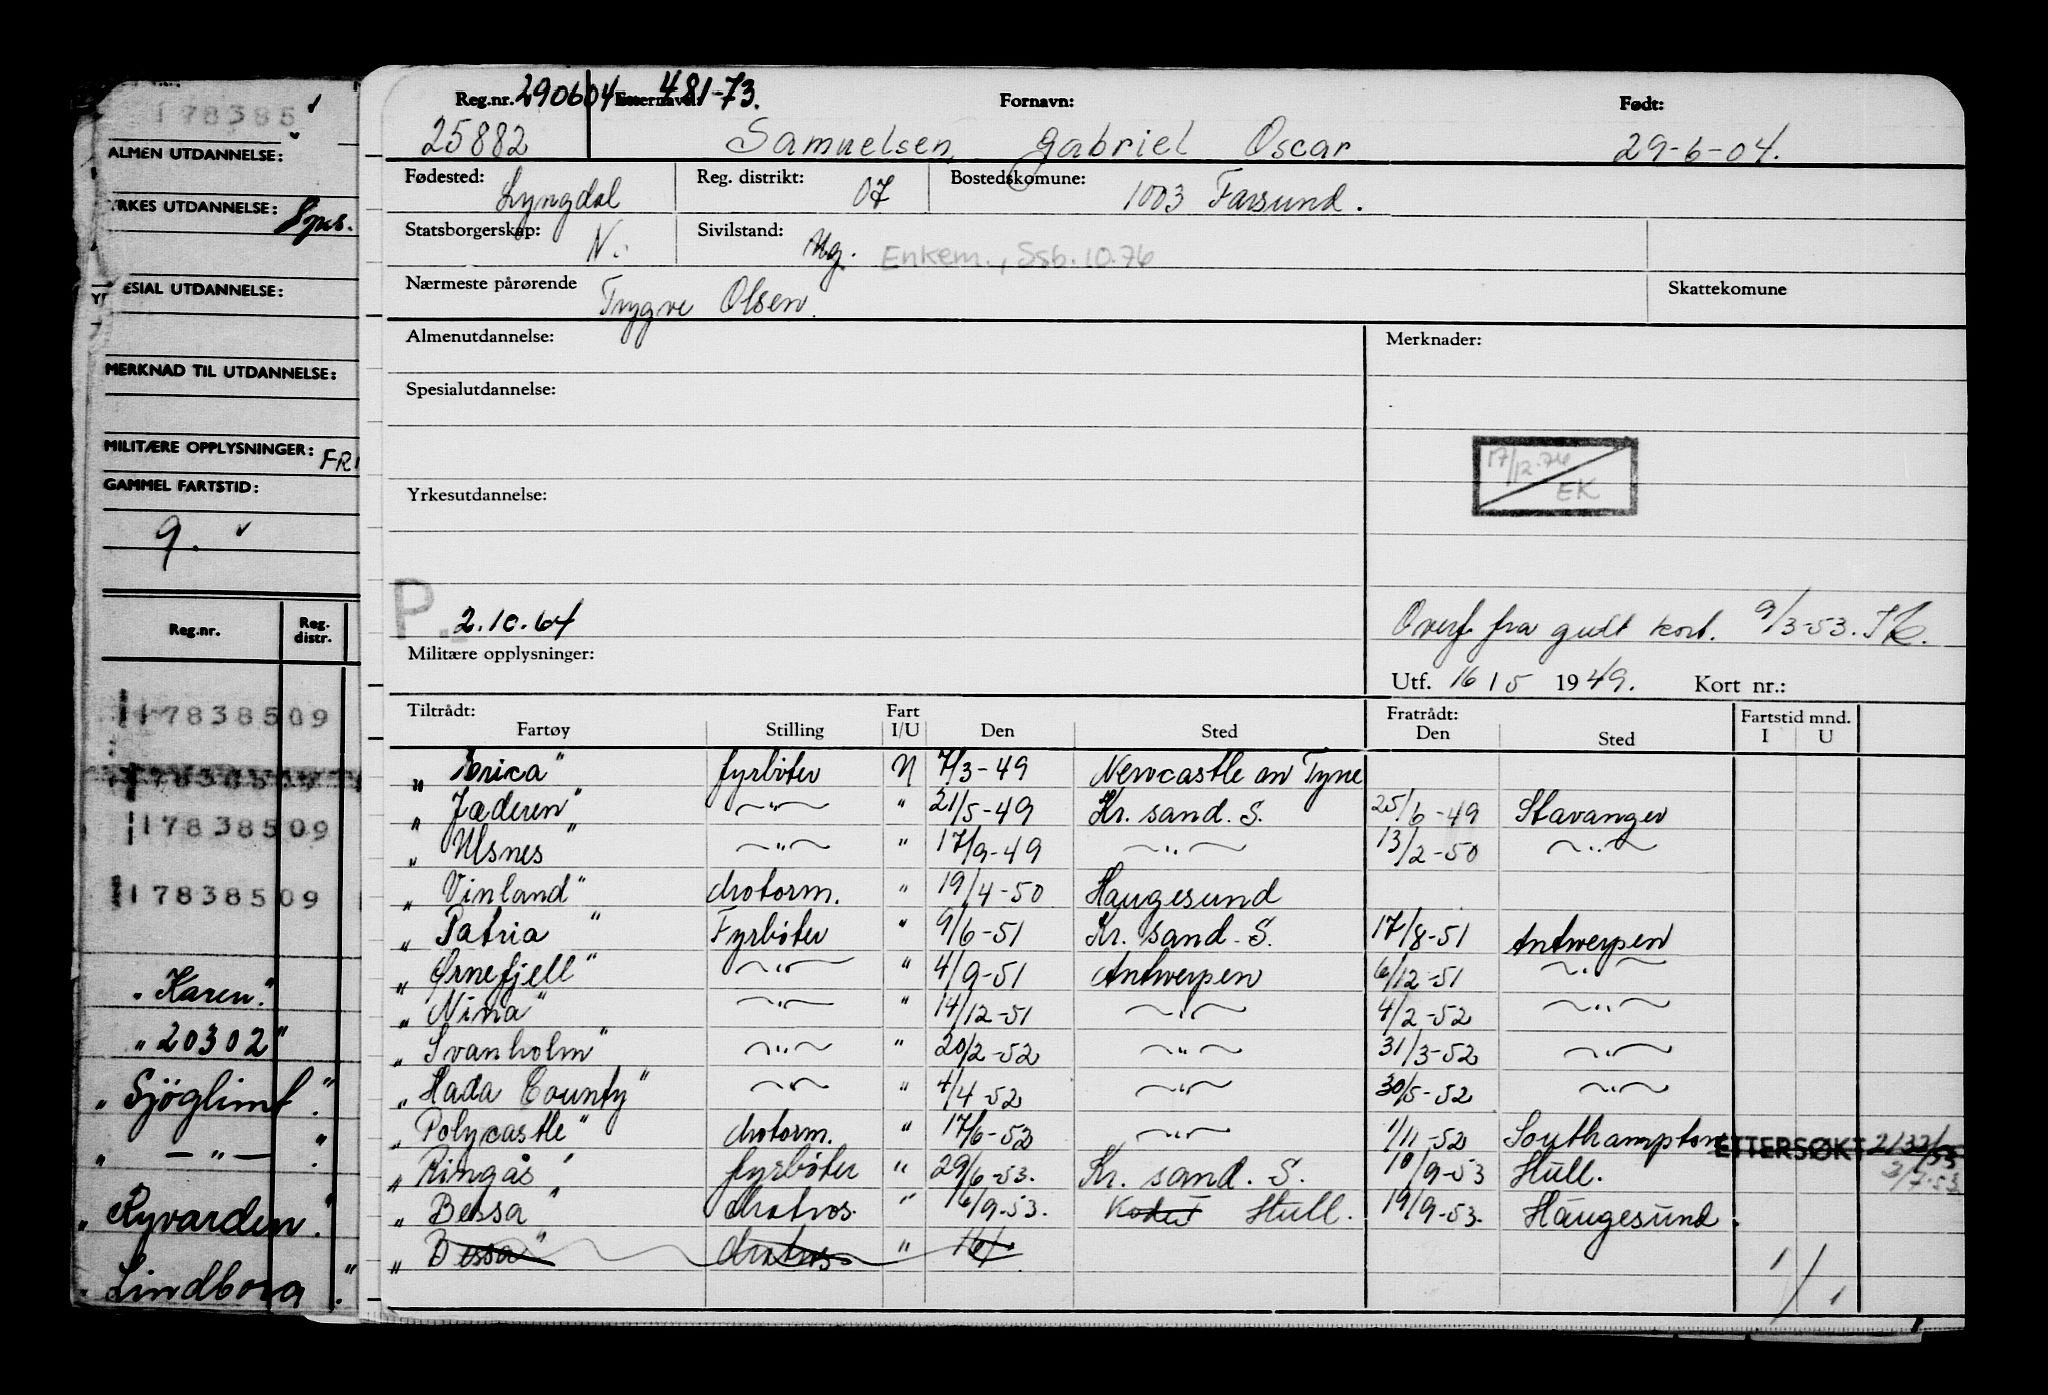 178385
ALMEN UTDANNELSE:
YRKES UTDANNELSE:
SPESIAL UTDANNELSE:
MERKNAD TIL UTDANNELSE:
MILITÆRE OPPLYSNINGER: FRI
GAMMEL FARTSTID:
9.
Reg.nr. Reg. distr.
178385 09
178385 09
178385 09
178385 09
"Karen"
"20302"
"Sjöglimt"
" — " — "
"Ryvarden"
"Lindborg"
Reg.nr. 290604 Etternavn: 481-73. Fornavn: Født:
25882 Samuelsen Gabriel Oscar 29-6-04.
Fødested: Lyngdal Reg. distrikt: 07 Bostedskomune: 1003 Farsund.
Statsborgerskap: N. Sivilstand: Ug. Enkem., Ssb. 10.76
Nærmeste pårørende Trygve Olsen. Skattekomune
Almenutdannelse: Merknader:
Spesialutdannelse:
17/12-76 EK
Yrkesutdannelse:
P. 2.10.64
Overf fra gult kort. 9/3-53.
Militære opplysninger:
Utf. 16 / 5 1949. Kort nr.:
Tiltrådt: Fart Fratrådt: Fartstid mnd.
Fartøy Stilling I/U Den Sted Den Sted I U
"Erica" fyrbøter N 7/3-49 Newcastle on Tyne
"Jæderen" —"— " 21/5-49 Kr. sand. S. 25/6-49 Stavanger
"Ulsnes" —"— " 17/9-49 —"— 13/2-50 —"—
"Vinland" Motorm. " 19/4-50 Haugesund
"Patria" Fyrbøter " 9/6-51 Kr. sand. S. 17/8-51 Antwerpen
"Ørnefjell" —"— " 4/9-51 Antwerpen 6/12-51 —"—
"Nina" —"— " 14/12-51 —"— 4/2-52 —"—
"Svanholm" —"— " 20/2-52 —"— 31/3-52 —"—
"Hada County" —"— " 4/4-52 —"— 30/5-52 —"—
"Polycastle" Motorm. " 17/6-52 —"— 1/11-52 Southampton ETTERSØKT
"Ringås" fyrbøter " 29/6-53. Kr. sand. S. 10/9-53 Hull. 3/7-53
"Bessa" Matros. " 16/9-53. Hull. 19/9-53. Haugesund.
"Bessa" Matros " 16/